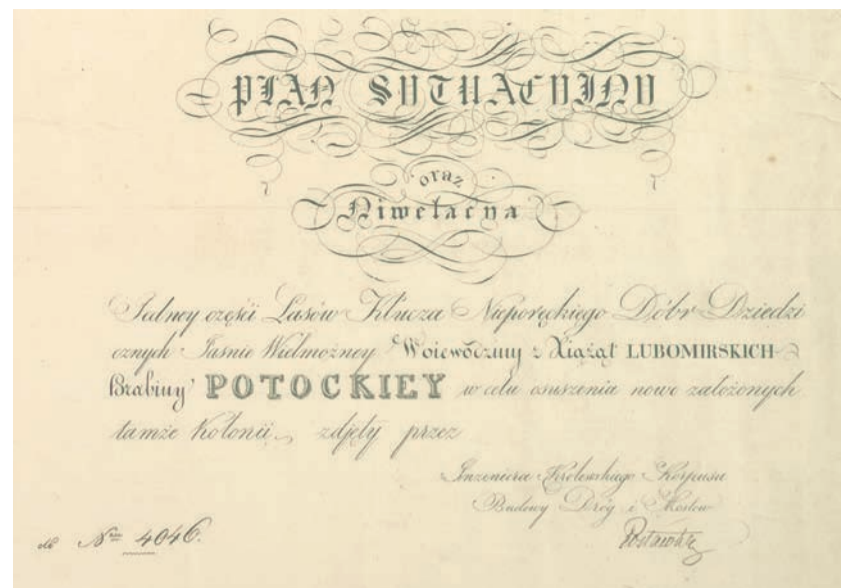 PLAN SYTUACYINY
oraz
Niwelacya
Jedney części Lasów Klucza Nieporęckiego Dóbr Dziedzi
cznych Jaśnie Wielmożney Woiewodziny z Xiążąt LUBOMIRSKICH
Hrabiny POTOCKIEY w celu osuszenia nowo założonych
tamże Kolonii, zdjęty przez
Inzeniera Królewskiego Korpusu
Budowy Dróg i Mostów
ad Nrm 4046.